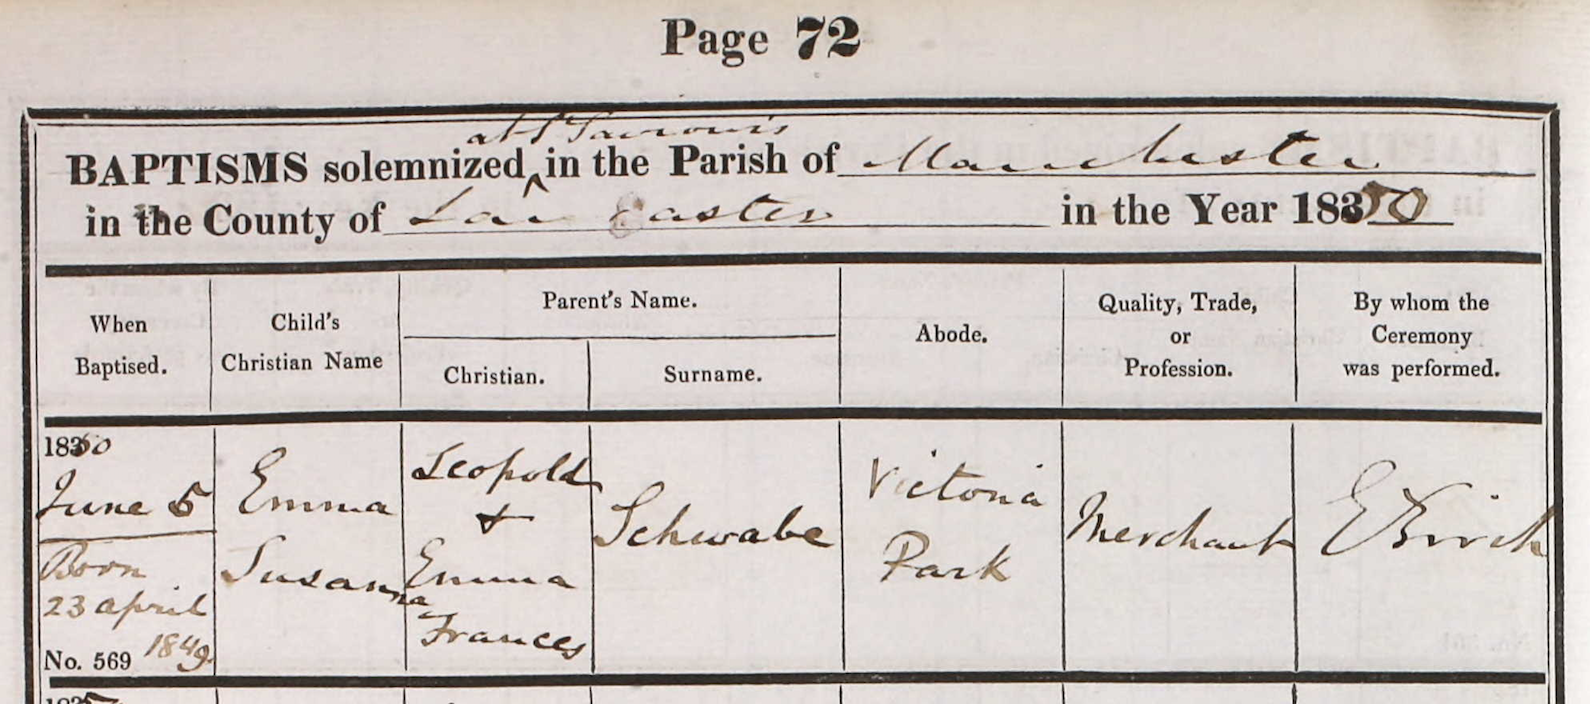 Page 72
at St Saviour's
BAPTISMS solemnized in the Parish of Manchester
in the County of Lancaster in the Year 1850
When
Baptised.
Child's
Christian Name
Parent's Name.
Christian.
Surname.
Abode.
Quality, Trade,
or
Profession.
By whom the
Ceremony
was performed.
1850
June 5
Born
23 april
1849.
No. 569
Emma
Susanna
Leopold
+
Emma
Frances
Schwabe
Victoria
Park
Merchant
E Birch